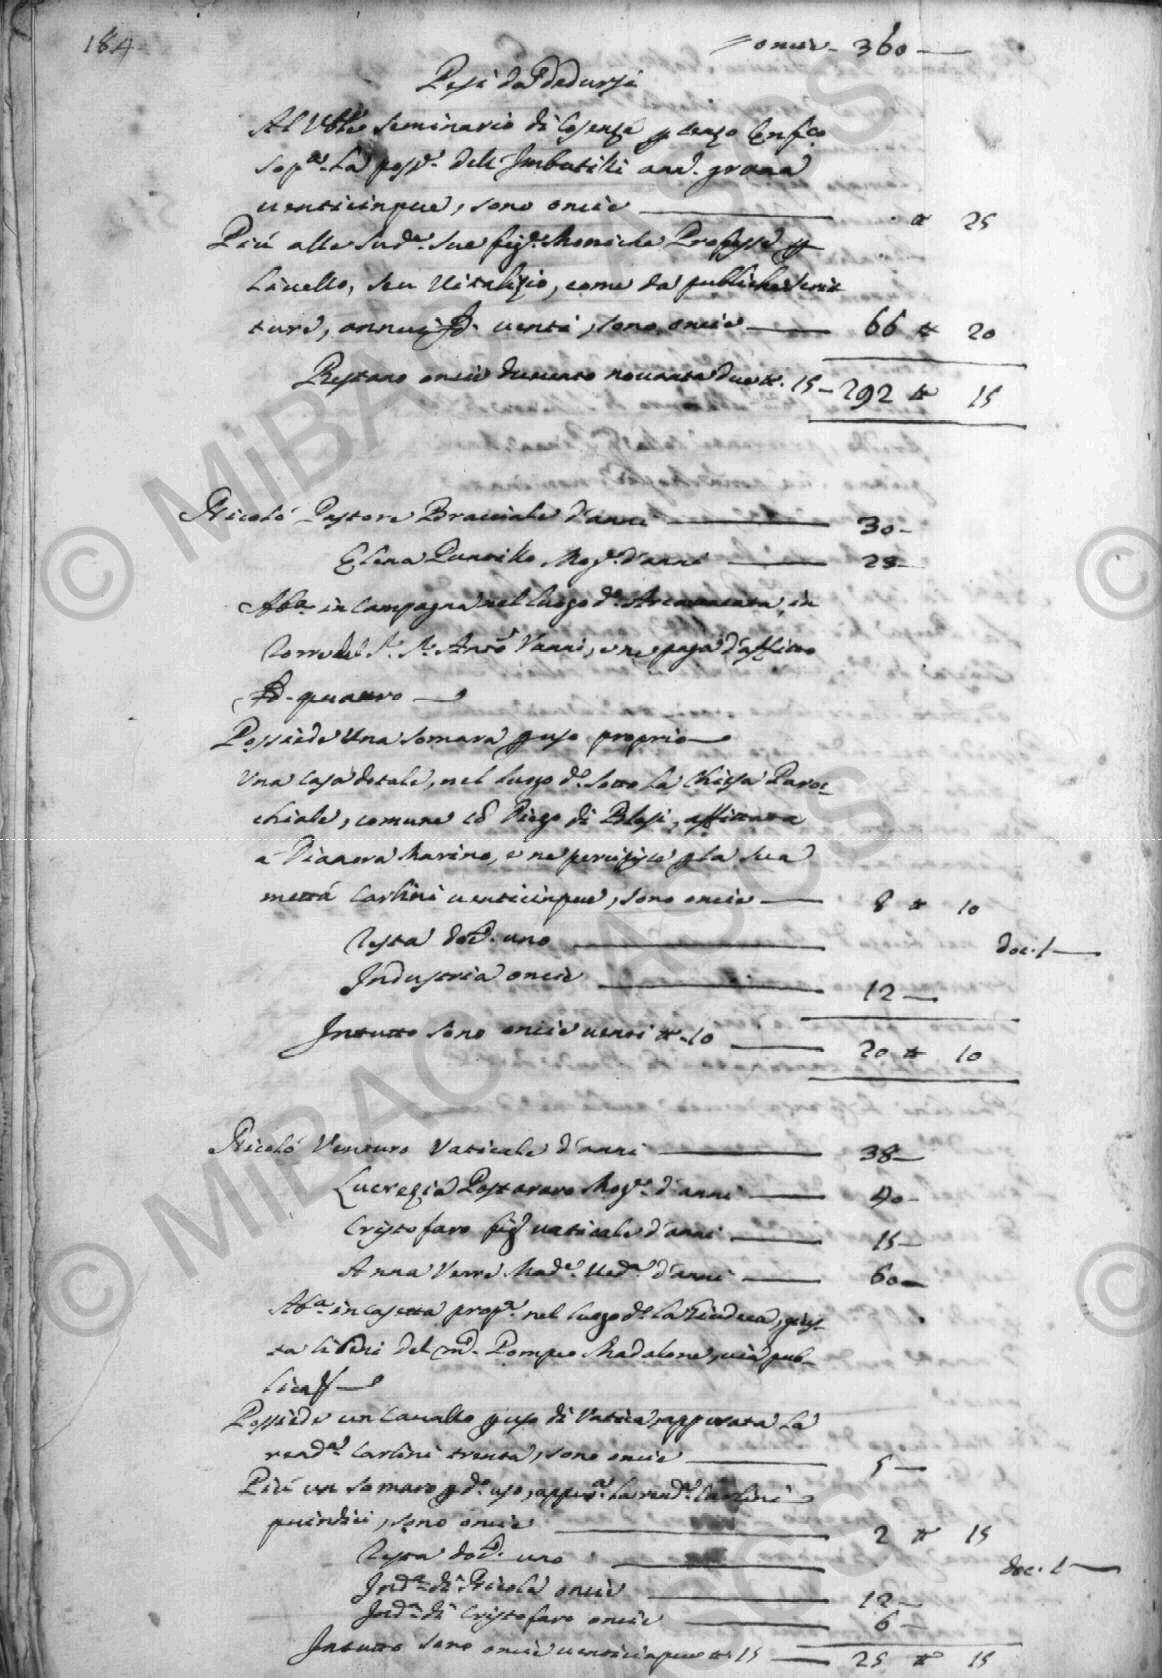 184
oncie 360
Pesi da dedursi
Al Vble Seminario di Cosenza p censo enf.co
sop.a la poss.e dell' Imbutilli ann. grana
venticinque, sono oncie . tt 25
Più alle sud.e sue fig.e Moniche Professe p
livello, seu vitalizio, come da publiche scrit
ture, annui d. venti, sono oncie 66 tt 20
Restano oncie duecento novanta due tt. 15 292 tt 15
Nicolò Pastore Bracciale d'anni 30
Elena Puntillo Mog.e d'anni 23
Ab.a in campagna nel luogo d.o in
Torre del Ant.o Vanni, e ne paga d'affitto
d. quattro
Possiede una somara p uso proprio
Una casa dotale, nel luogo d.o sotto la Chiesa Paroc
chiale, comune cō Diego di Blasi, affittata
a Dianora Marino, e ne percepisce p la sua
mettá Carlini venticinque, sono oncie 8 tt 10
Testa doc. uno doc. 1
Industria oncie 12
Intutto sono oncie venti tt. 10 20 tt 10
Nicolò Venturo Vaticale d'anni 38
Lucrezia Postararo Mog.e d'anni 40
Cristofaro fig.o vaticale d'anni 15
Anna Verre Mad.e Ved.a d'anni 60
Ab.a in casetta prop.a nel luogo d.o la Giudeca, giux
ta li beni del m.co Pompeo Madalone, via pub
lica
Possiede un Cavallo p uso di Vatica, apprezzata la
rend.a Carlini trenta, sono oncie 5
Più un somaro p d.o uso, appr.a la rend.a Carlini
quindici, sono oncie 2 tt 15
Testa doc. uno doc. 1
Ind.a di Nicola oncie 12
Ind.a di Cristofaro oncie 6
Intutto sono oncie venticinque tt 15 25 tt 15
© MiBAC ASCS ©
© MiBAC ASCS ©